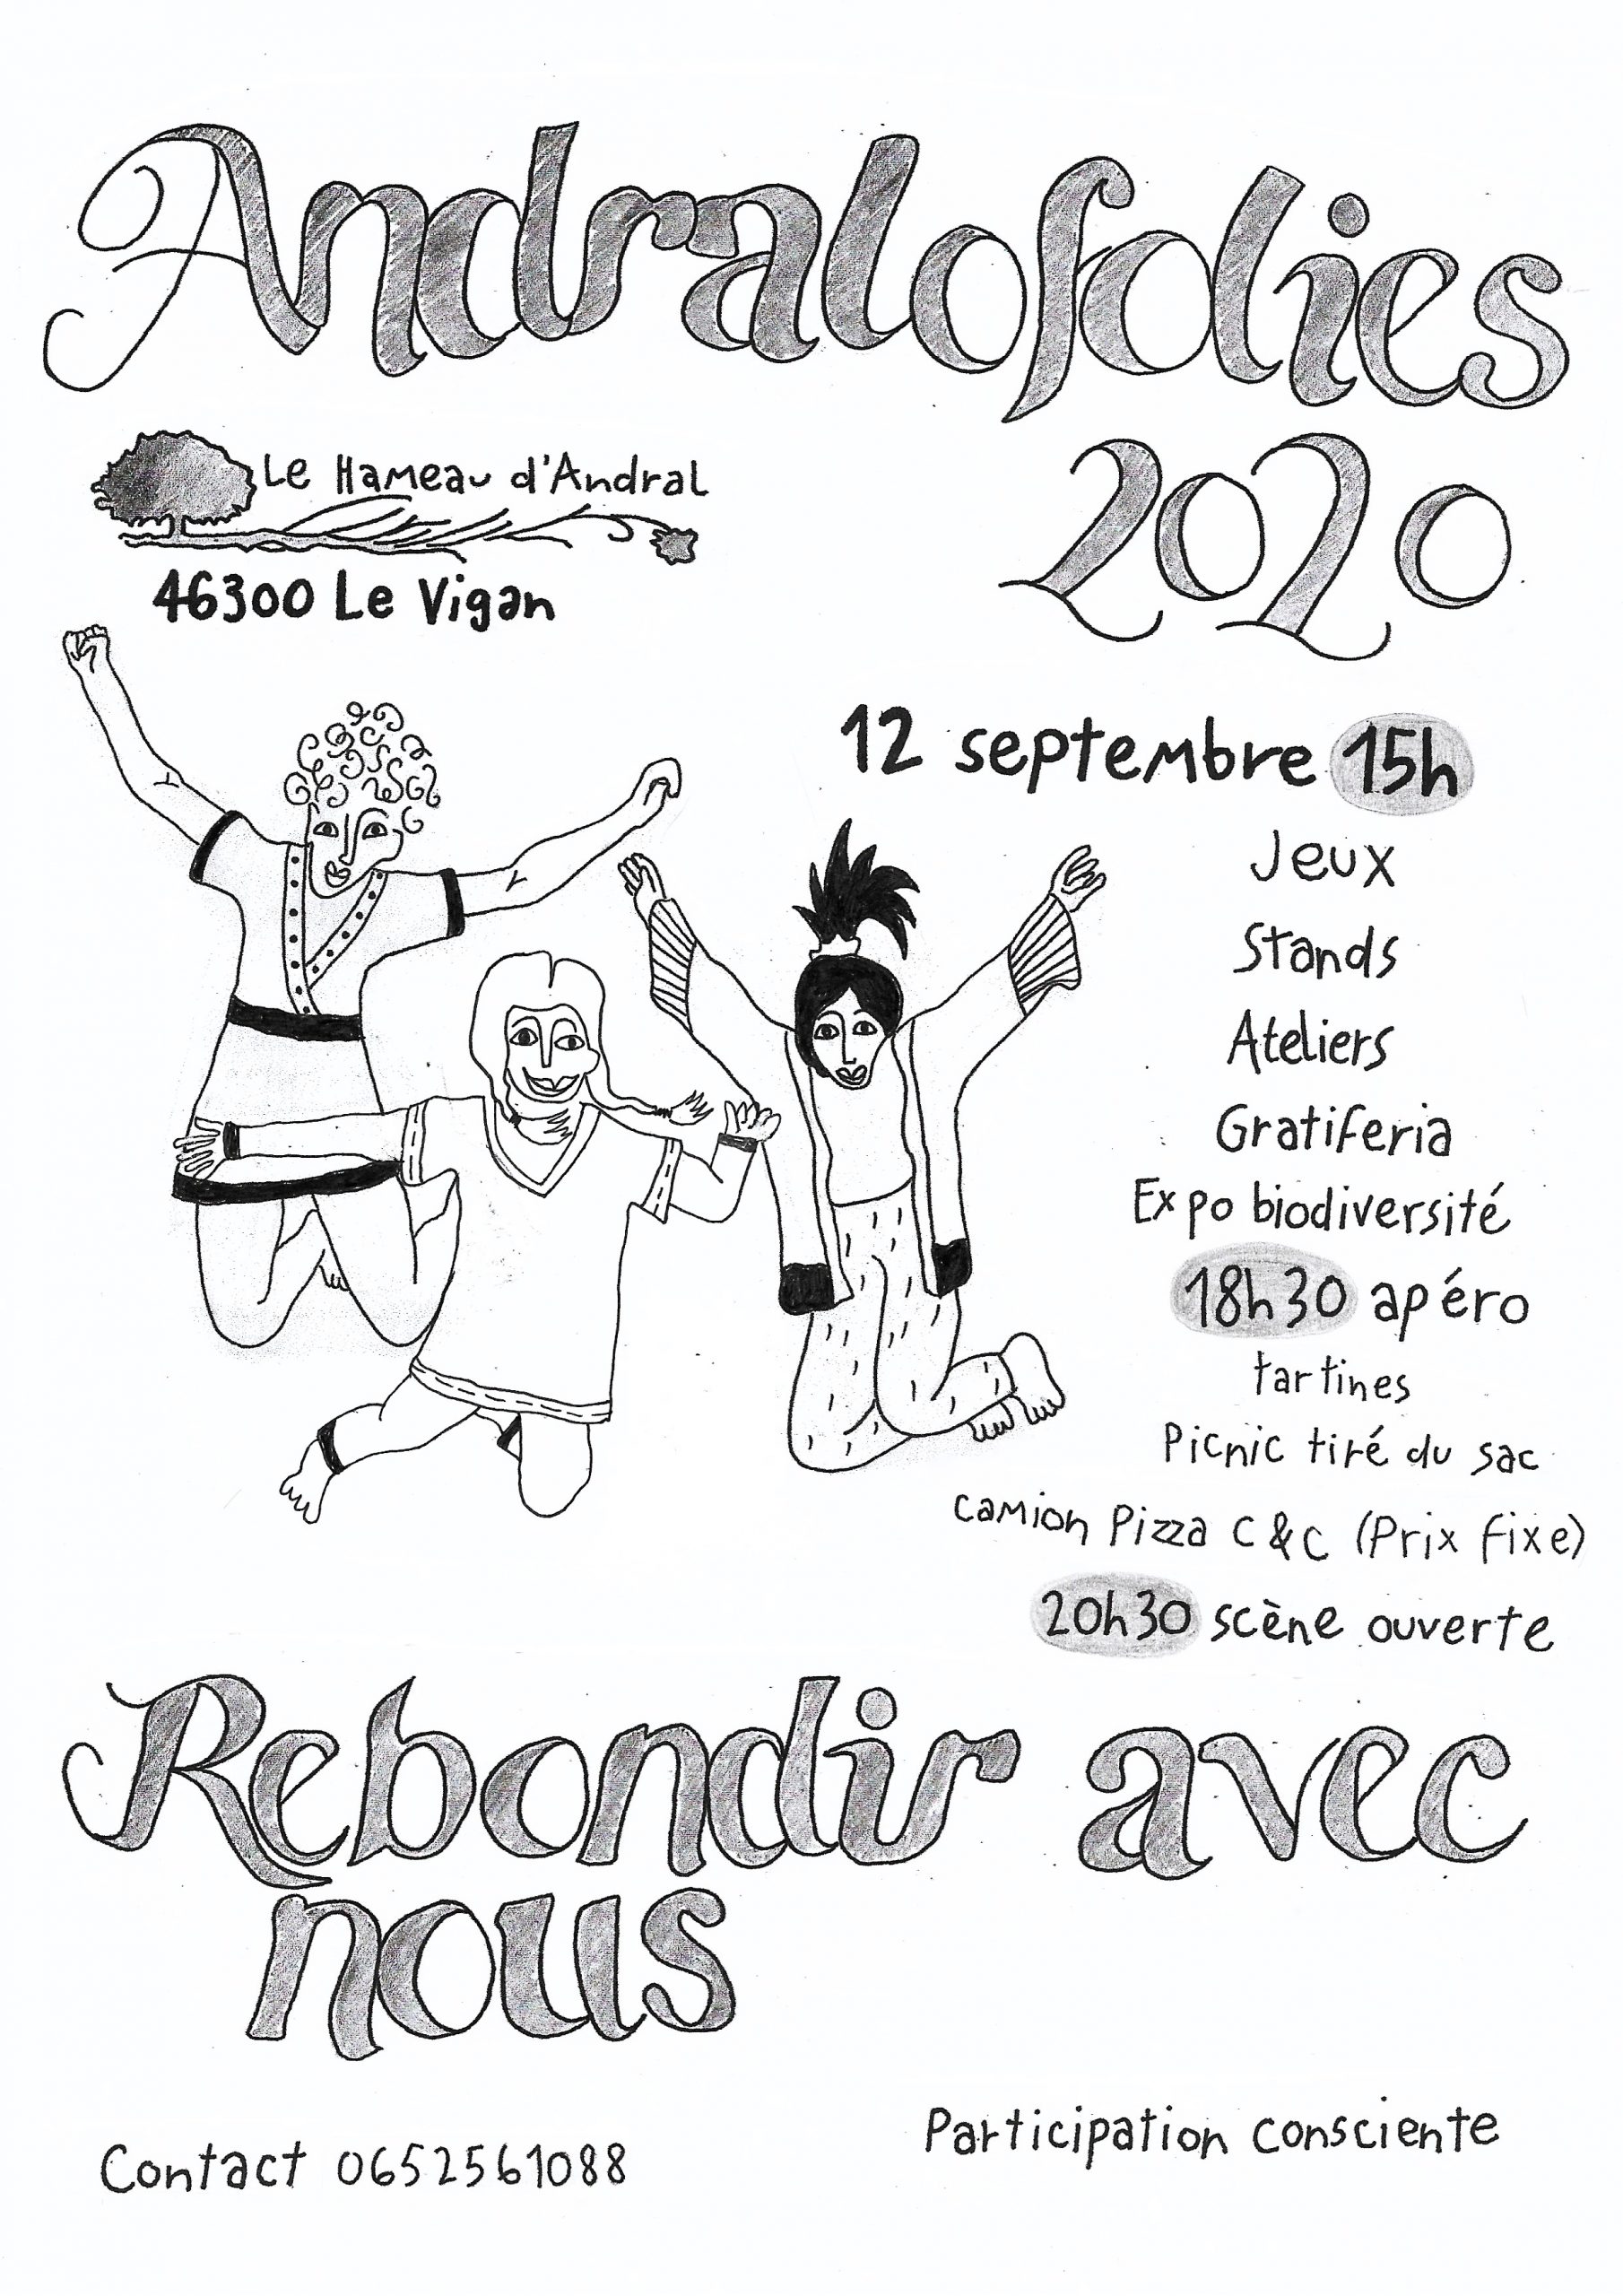 Andralofolies
2020
Le Hameau d'Andral
46300 Le Vigan
12 septembre 15h
Jeux
Stands
Ateliers
Gratiferia
Expo biodiversité
18h30 apéro
tartines
Picnic tiré du sac
camion Pizza C & C (Prix fixe)
20h30 scène ouverte
Rebondir avec
nous
Contact 0652561088
Participation consciente